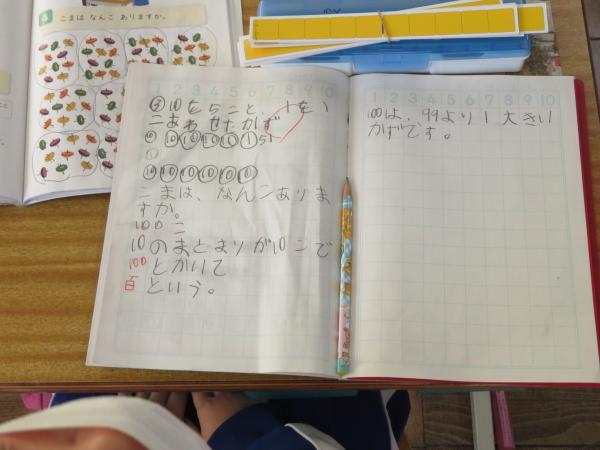 4 こまは なんこ ありますか。
1 2 3 4 5 6 7 8 9 10
② 10を5こと、1を1
こあわせたかず
10 10 10 10 10 1 51
10 10 10 10 10 10
こまは、なんこありま
すか。
100こ
10のまとまりが10こで
100とかいて
百という。
1 2 3 4 5 6 7 8 9 10
100は、99より1大きい
かずです。